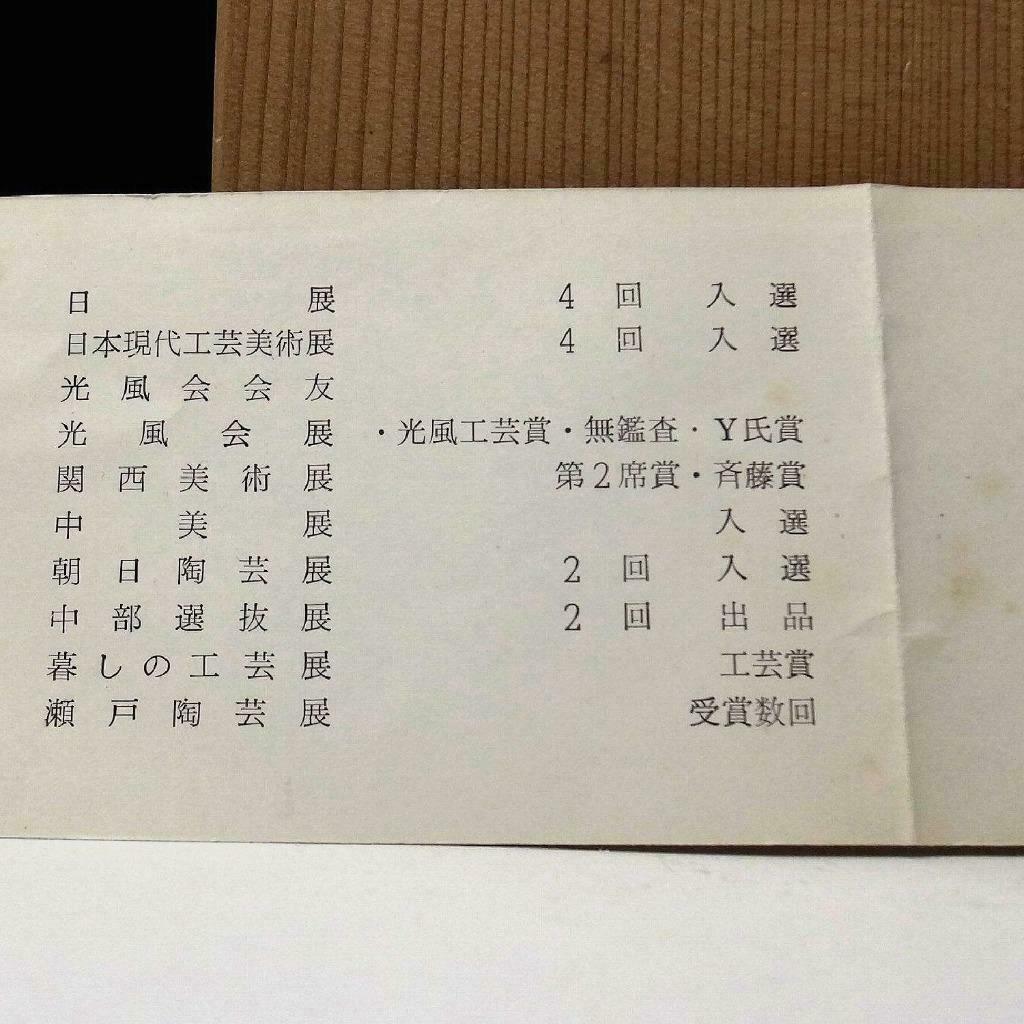 日展 4回入選
日本現代工芸美術展 4回入選
光風会会友
光風会展・光風工芸賞・無鑑査・Y氏賞
関西美術展 第2席賞・斉藤賞
中美展 入選
朝日陶芸展 2回入選
中部選抜展 2回出品
暮しの工芸展 工芸賞
瀬戸陶芸展 受賞数回